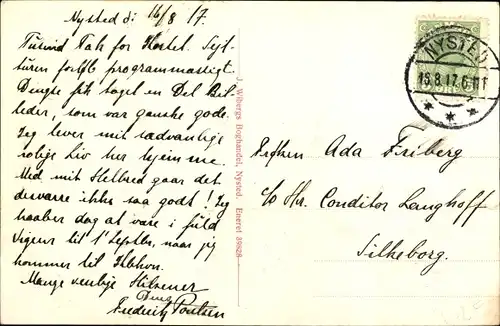 Nysted d: 16/8 17.
Tusind Tak for Kortet. Sejl-
turen forløb programmæssigt.
Dingse fik taget en Del Bil-
leder, som var ganske gode.
Jeg lever mit sædvanlige
rolige Liv her hjemme.
Med mit Helbred gaar det
desværre ikke saa godt! Jeg
haaber dog at være i fuld
Vigeur til 1' Septbr, naar jeg
kommer til Kbhvn.
Mange venlige Hilsener
Frederik Poulsen
J. Wibergs Boghandel, Nysted. Eneret 39828
NYSTED
16.8.17.
Frøken Ada Friberg
c/o Hr. Conditor Langhoff
Silkeborg.